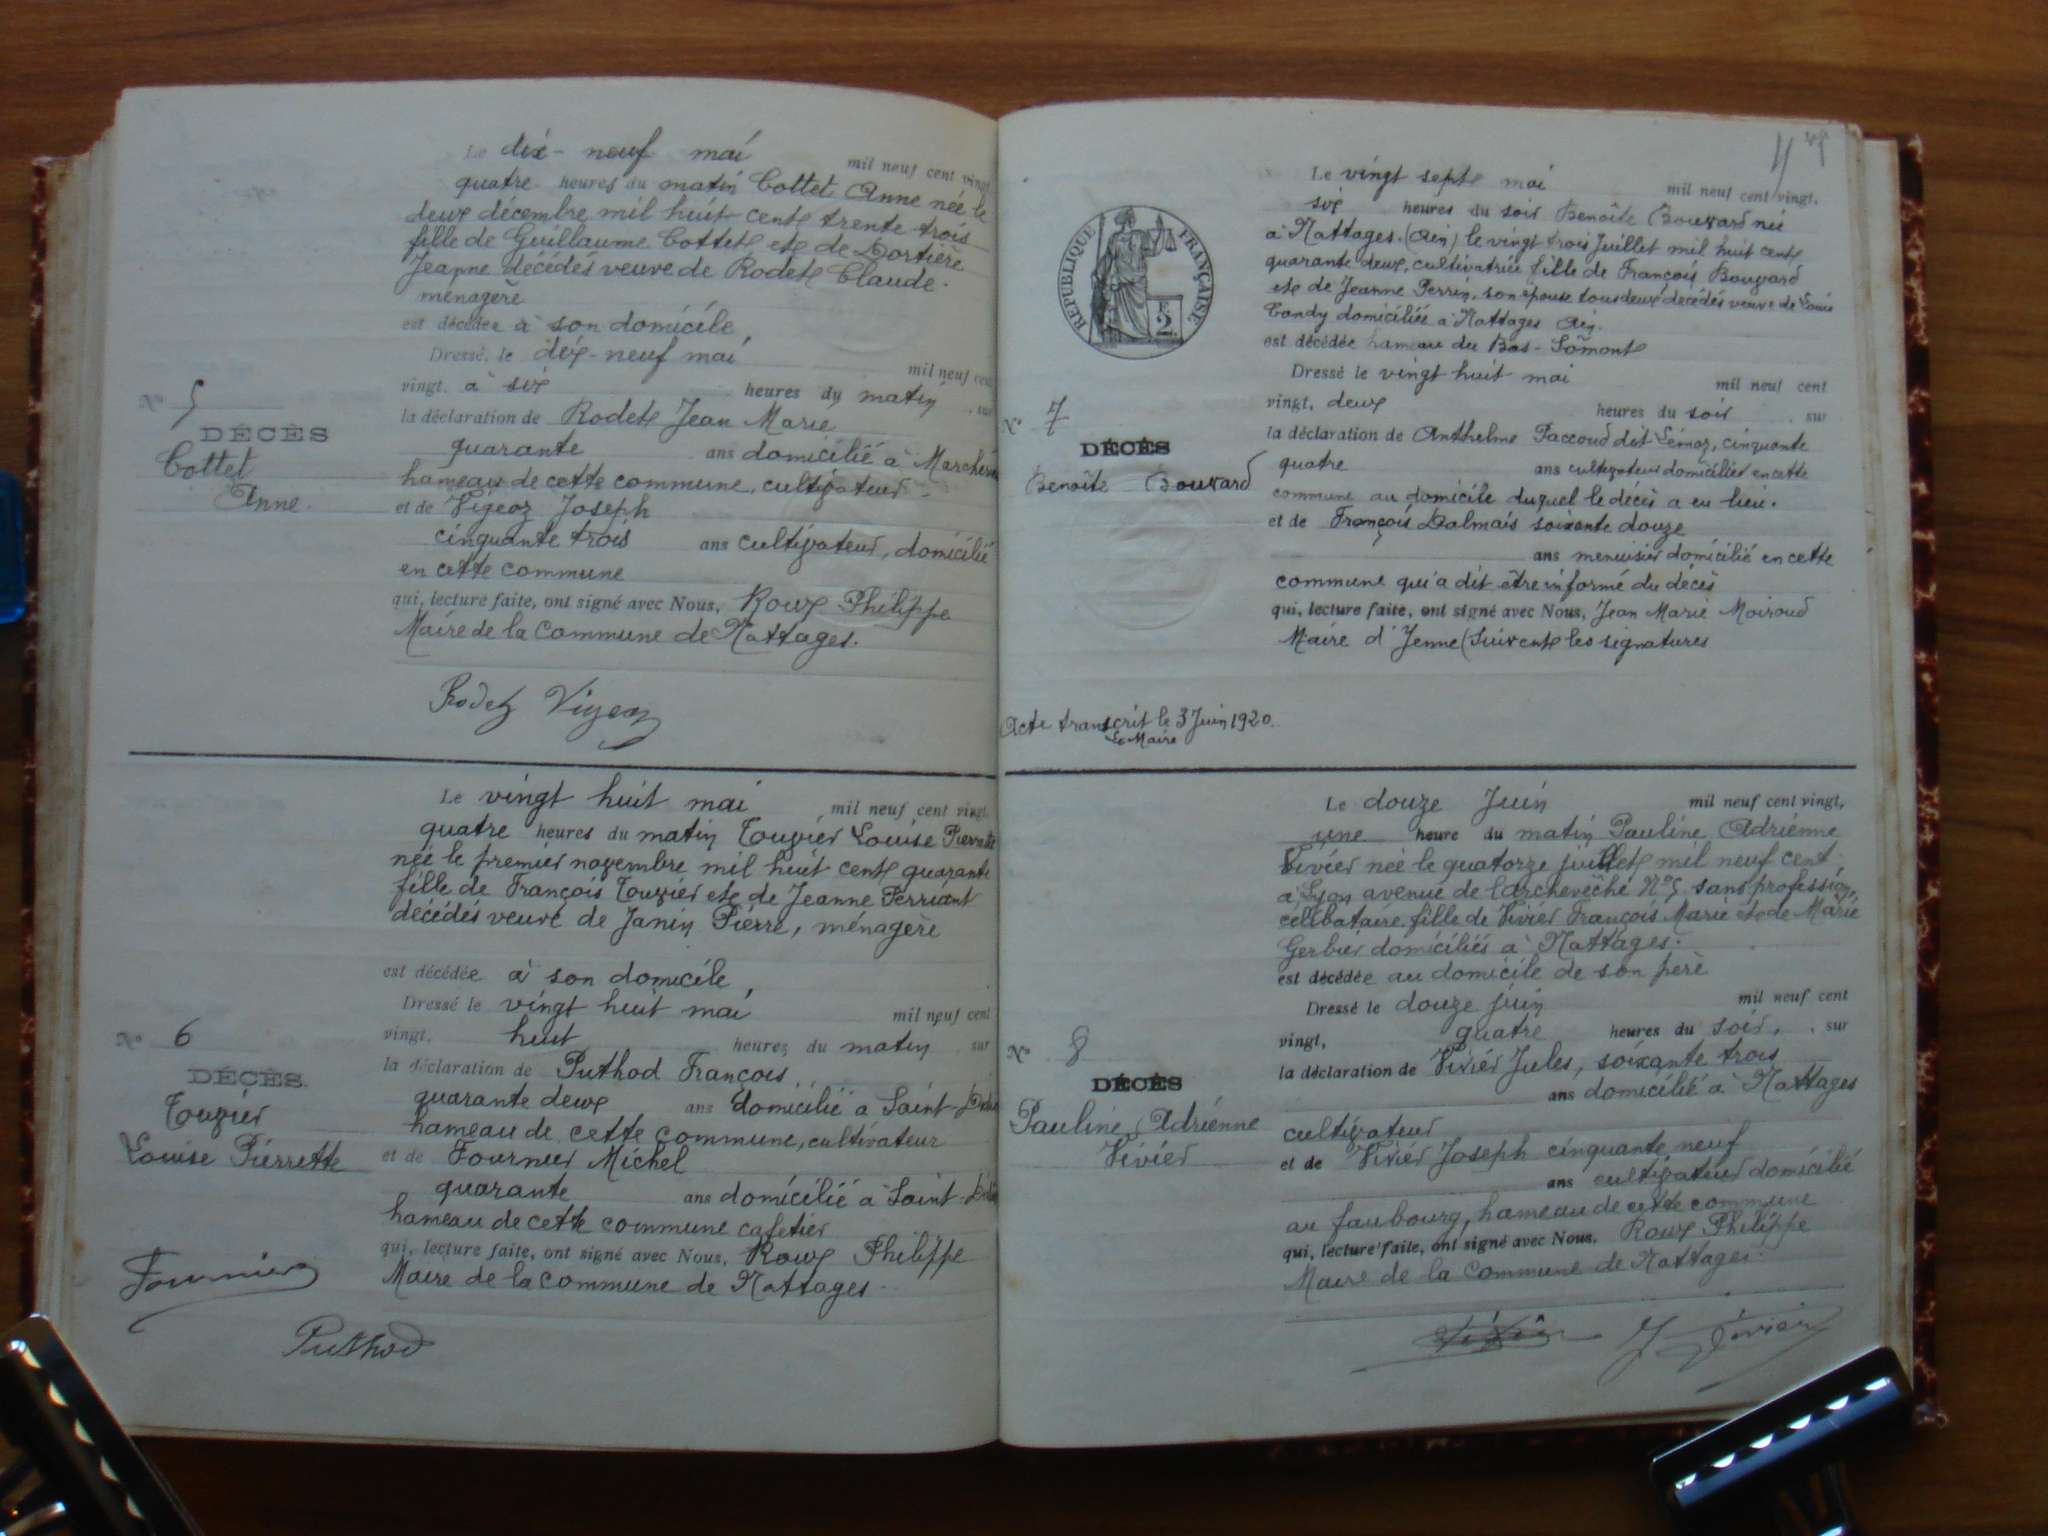 Le dix-neuf mai mil neuf cent vingt
quatre heures du matin Cottet Anne née le
deux décembre mil huit cent trente trois
fille de Guillaume Cottet et de Dortière
Jeanne décédés veuve de Rodet Claude.
ménagère
est décédée à son domicile,
Dressé, le dix-neuf mai mil neuf cent
vingt, à six heures du matin, sur
la déclaration de Rodet Jean Marie
quarante ans domicilié à
hameau de cette commune, cultivateur
et de Vigeoz Joseph
cinquante trois ans cultivateur, domicilié
en cette commune
qui, lecture faite, ont signé avec Nous, Roux Philippe
Maire de la Commune de Nattages.
N° 5
DÉCÈS
Cottet
Anne.
Rodet Vigeoz
Le vingt huit mai mil neuf cent vingt,
quatre heures du matin Touvier Louise Pierrette
née le premier novembre mil huit cent quarante
fille de François Touvier et de Jeanne Perriant
décédés veuve de Janin Pierre, ménagère
est décédée à son domicile,
Dressé le vingt huit mai mil neuf cent
vingt, huit heures du matin, sur
la déclaration de Puthod François
quarante deux ans domicilié à Saint-
hameau de cette commune, cultivateur
et de Fournier Michel
quarante ans domicilié à Saint-
hameau de cette commune cafetier
qui, lecture faite, ont signé avec Nous, Roux Philippe
Maire de la Commune de Nattages.
N° 6
DÉCÈS.
Touvier
Louise Pierrette
Fournier
Puthod
Le vingt sept mai mil neuf cent vingt,
six heures du soir Benoîte Bouvard née
à Nattages. (Ain) le vingt trois Juillet mil huit cent
quarante deux, cultivatrice fille de François Bouvard
et de Jeanne Perrin, son épouse tous deux décédés veuve de Louis
Candy domiciliée à Nattages Ain.
est décédée hameau du Bas-Somont
Dressé le vingt huit mai mil neuf cent
vingt, deux heures du soir, sur
la déclaration de Anthelme Paccoud dit Lémoz, cinquante
quatre ans cultivateur domicilier en cette
commune au domicile duquel le décès a eu lieu.
et de François Dalmais soixente douze
ans menuisier domicilié en cette
commune qui a dit être informé du décès
qui, lecture faite, ont signé avec Nous, Jean Marie Moiroud
Maire d'Jenne (Suivent les signatures
RÉPUBLIQUE FRANÇAISE
N° 7
DÉCÈS
Benoîte Bouvard
Acte transcrit le 3 Juin 1920.
Le Maire
Le douze Juin mil neuf cent vingt,
une heure du matin Pauline Adrienne
Vivier née le quatorze juillet mil neuf cent
à Lyon avenue de l'archevêché N° 5 sans profession,
célibataire fille de Vivier François Marie et de Marie
Gerbier domiciliés à Nattages.
est décédée au domicile de son père
Dressé le douze juin mil neuf cent
vingt, quatre heures du soir, sur
la déclaration de Vivier Jules, soixante trois
ans domicilié à Nattages
cultivateur
et de Vivier Joseph cinquante neuf
ans cultivateur domicilié
au faubourg, hameau de cette commune
qui, lecture faite, ont signé avec Nous, Roux Philippe
Maire de la Commune de Nattages.
N° 8
DÉCÈS
Pauline Adrienne
Vivier
J Vivier